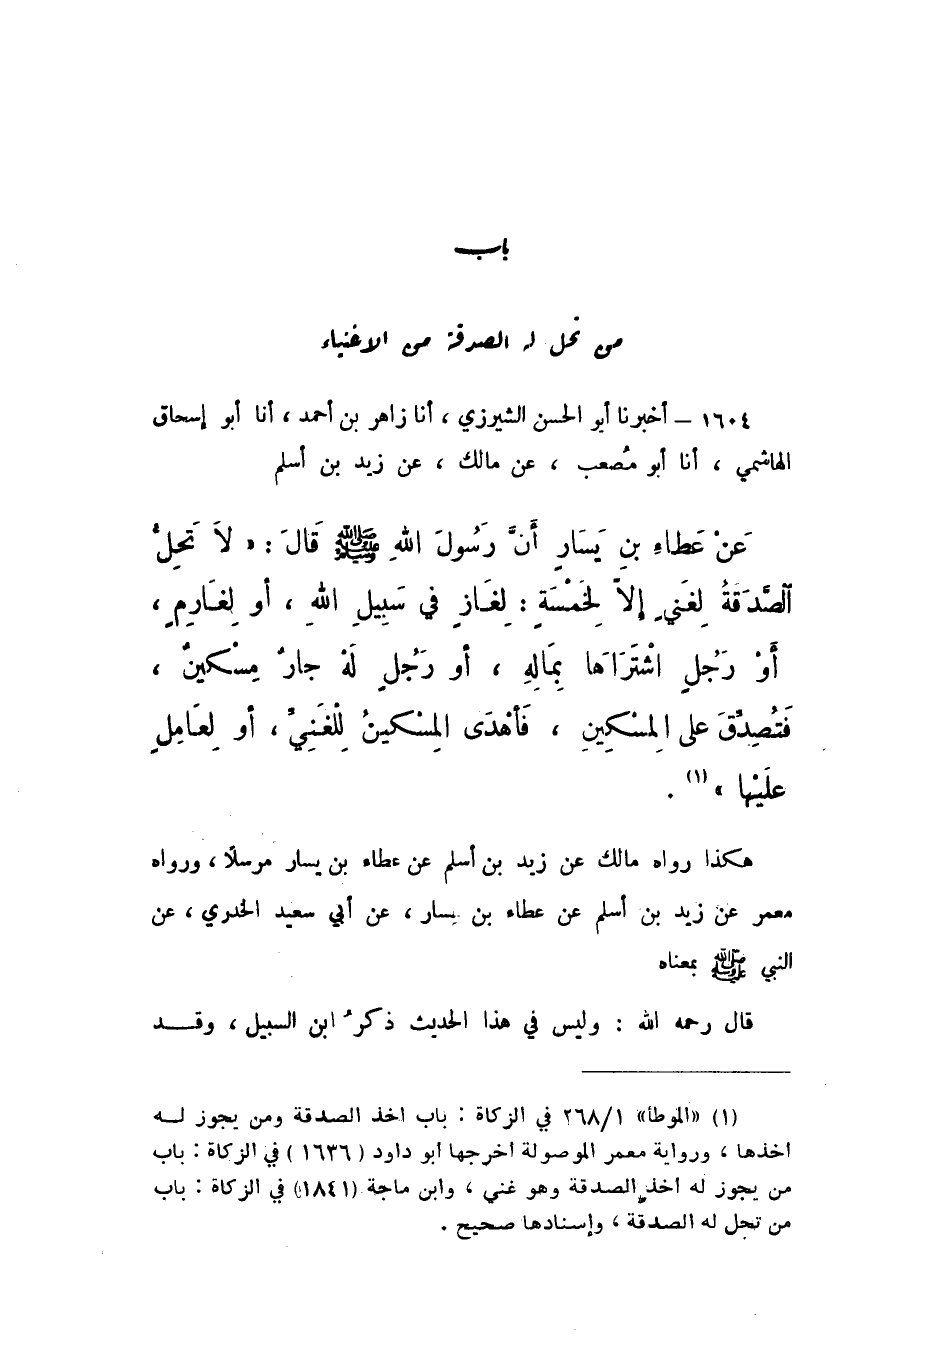 باب
من تحل له الصدقة من الاغنياء
١٦٠٤ – أخبرنا أبو الحسن الشيرزي ، أنا زاهر بن أحمد ، أنا أبو إسحاق
الهاشمي ، أنا أبو مُصعب ، عن مالك ، عن زيد بن أسلم
عَنْ عَطاءِ بنِ يَسَارٍ أَنَّ رَسُولَ اللهِ ﷺ قَالَ : « لاَ تَحِلُّ
الصَّدَقَةُ لِغَنيٍ إلاّ لِخَمْسَةٍ : لِغَازٍ في سَبِيلِ اللهِ ، أو لِغَارِمٍ ،
أَوْ رَجُلٍ اشْتَرَاهَا بِمَالِهِ ، أو رَجُلٍ لَهُ جارٌ مِسْكينٌ ،
فَتُصِدِّقَ على المِسْكِينِ ، فَأهْدَى المِسْكينُ لِلْغَنِيِّ ، أو لِعَامِلٍ
عَلَيْها » (١) .
هكذا رواه مالك عن زيد بن أسلم عن عطاء بن يسار مرسلًا ، ورواه
معمر عن زيد بن أسلم عن عطاء بن يسار ، عن أبي سعيد الخدري ، عن
النبي ﷺ بمعناه
قال رحمه الله : وليس في هذا الحديث ذكرُ ابن السبيل ، وقـــد
(١) «الموطأ» ٢٦٨/١ في الزكاة : باب اخذ الصدقة ومن يجوز لـــه
أخذها ، ورواية معمر الموصولة أخرجها أبو داود ( ١٦٣٦ ) في الزكاة : باب
من يجوز له أخذ الصدقة وهو غني ، وابن ماجة (١٨٤١) في الزكاة : باب
من تحل له الصدقة ، وإسنادها صحيح .